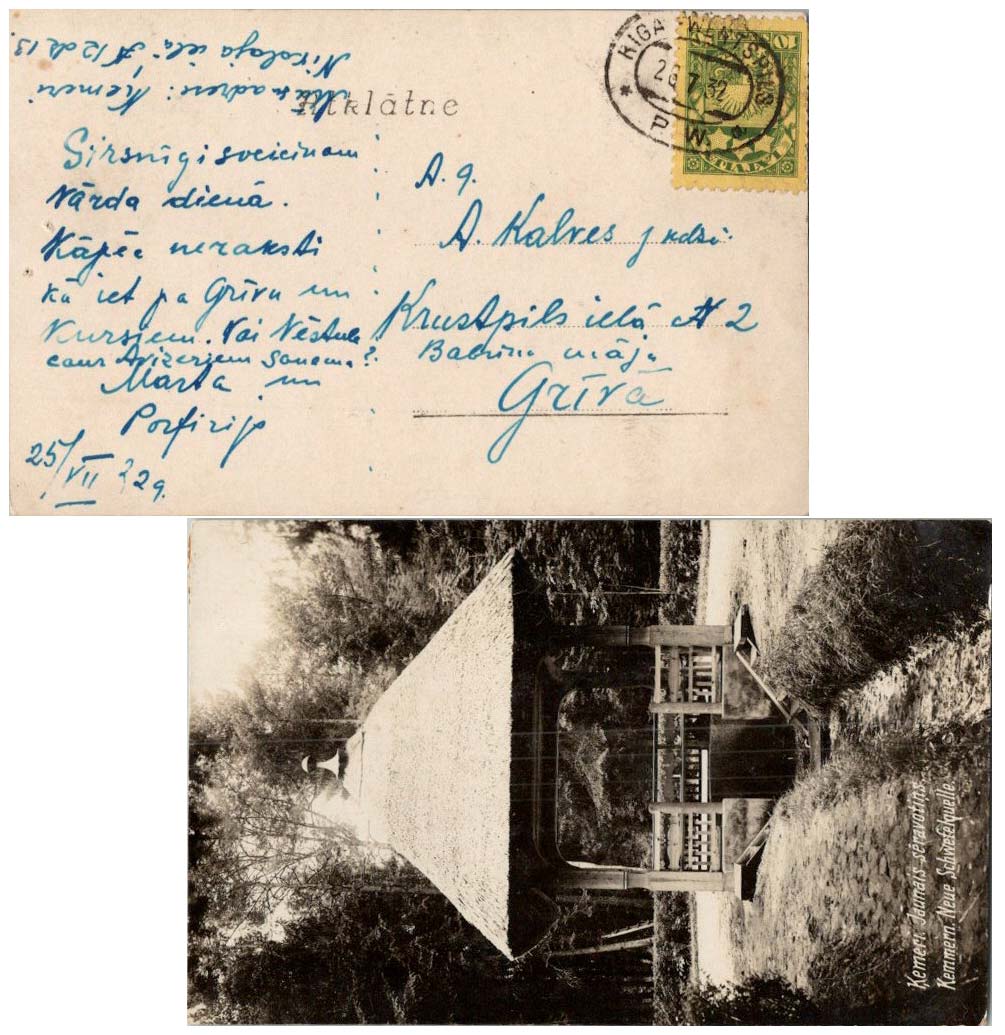 Atklātne
Mūsu adrese: Ķemeri
Nikolaja ielā № 12 dz. 13.
Sirsnīgi sveicinam
Vārda dienā.
Kāpēc neraksti
kā iet pa Grīvu un
Kursiem. Vai Vēstule
caur Avizerjem saņēma?
Marta un
Porfirijs
25/VII 29.
A. g.
A. Kalves jkdzi.
Krustpils ielā № 2
māja
Grīvā
RIGA - WENTSPILS
26.7.32
P. W.
LATVIJA
10
Ķemeri. Jaunais sēravotiņš.
Kemmern. Neue Schwefelquelle.